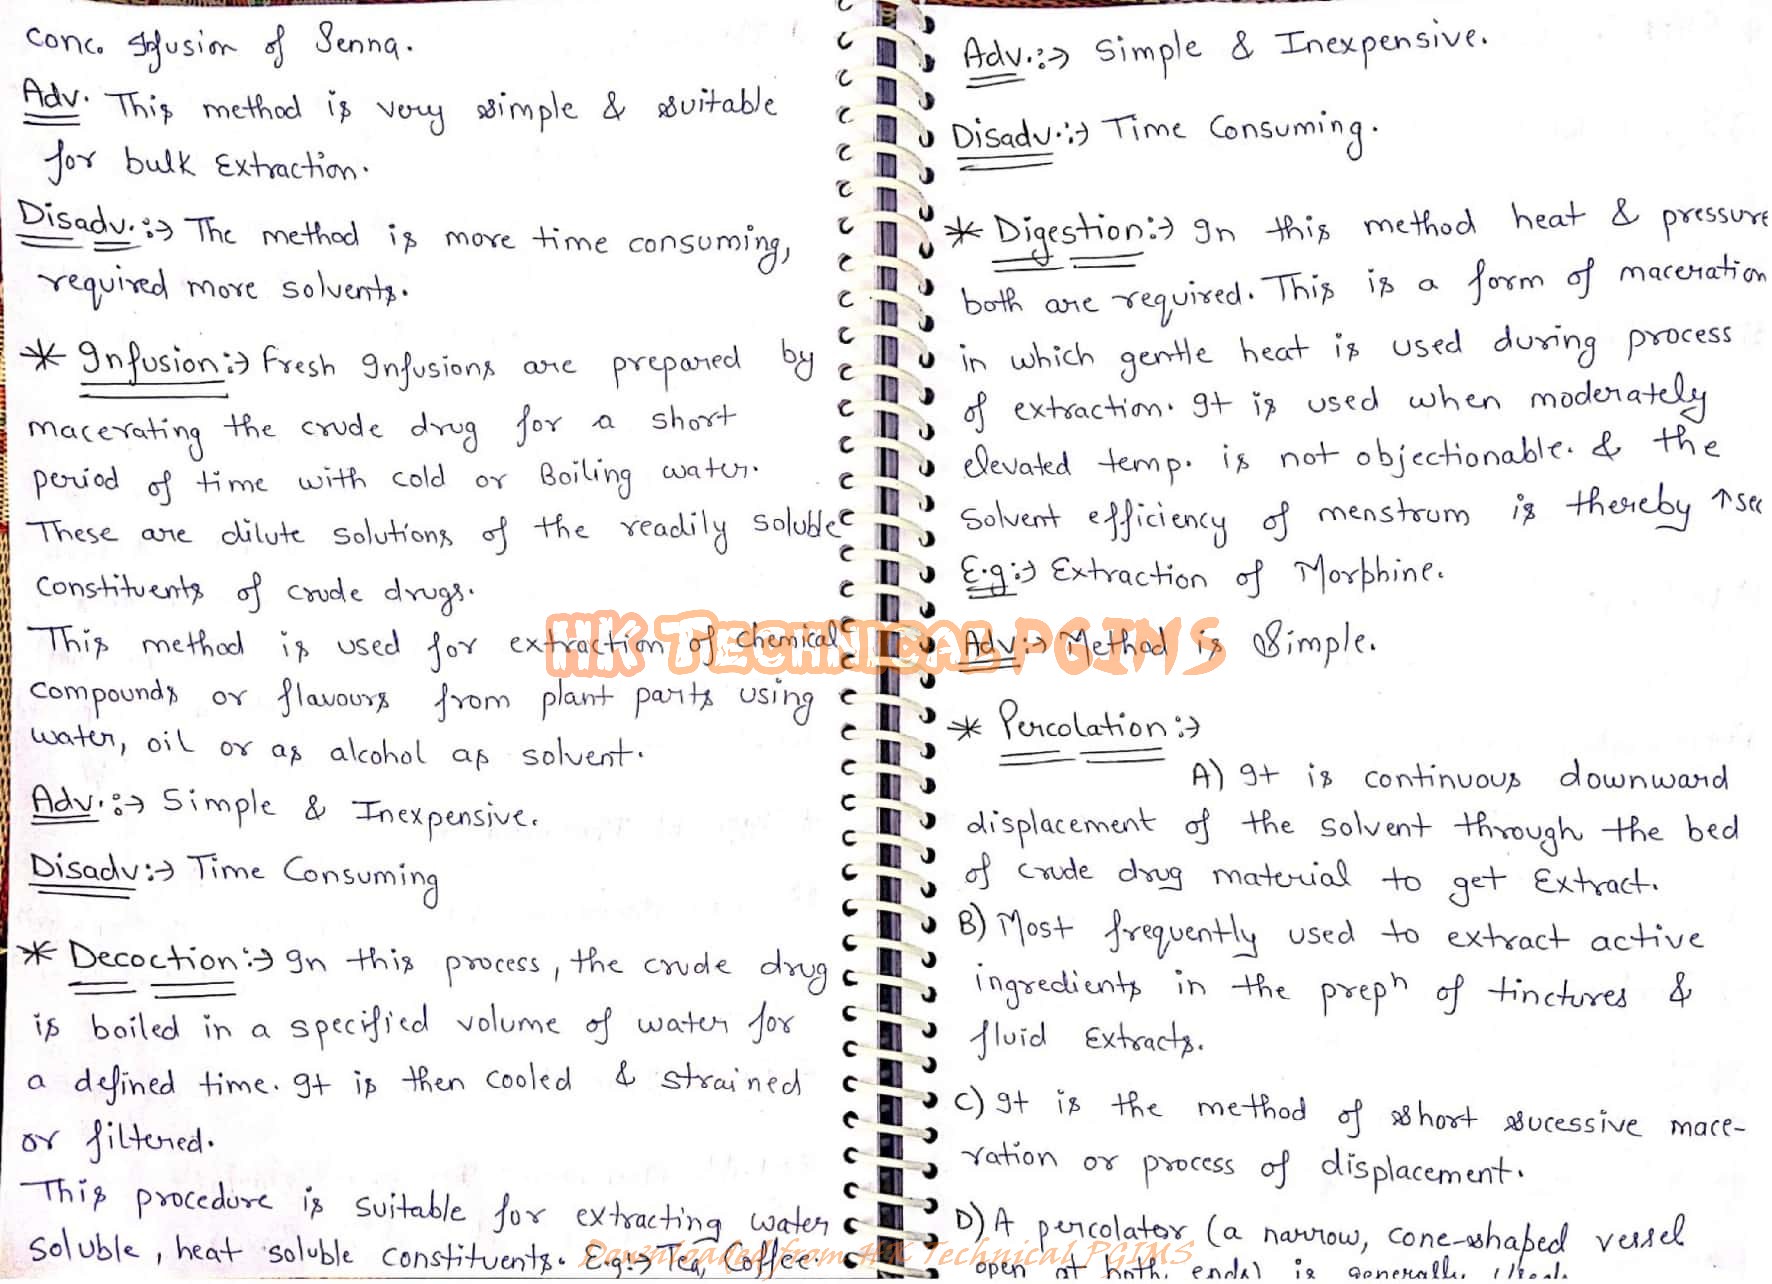 Conc. Infusion of Senna.
Adv. This method is very simple & suitable
for bulk Extraction.
Disadv.:→ The method is more time consuming,
required more solvents.
* Infusion:→ Fresh Infusions are prepared by
macerating the crude drug for a short
period of time with cold or Boiling water.
These are dilute solutions of the readily soluble
constituents of crude drugs.
This method is used for extraction of chemical
compounds or flavours from plant parts using
water, oil or as alcohol as solvent.
Adv.:→ Simple & Inexpensive.
Disadv:→ Time Consuming
* Decoction:→ In this process, the crude drug
is boiled in a specified volume of water for
a defined time. It is then cooled & strained
or filtered.
This procedure is suitable for extracting water
soluble, heat soluble constituents. E.g:→ Tea, Coffee.
Adv.:→ Simple & Inexpensive.
Disadv.:→ Time Consuming.
* Digestion:→ In this method heat & pressure
both are required. This is a form of maceration
in which gentle heat is used during process
of extraction. It is used when moderately
elevated temp. is not objectionable. & the
solvent efficiency of menstrum is thereby ↑sed
E.g:→ Extraction of Morphine.
Adv:→ Method is Simple.
* Percolation:→
A) It is continuous downward
displacement of the solvent through the bed
of crude drug material to get Extract.
B) Most frequently used to extract active
ingredients in the prepⁿ of tinctures &
fluid Extracts.
C) It is the method of short sucessive mace-
ration or process of displacement.
D) A percolator (a narrow, cone-shaped vessel
open at both ends) is generally used.
HK TECHNICAL PGIMS
Downloaded from HK Technical PGIMS